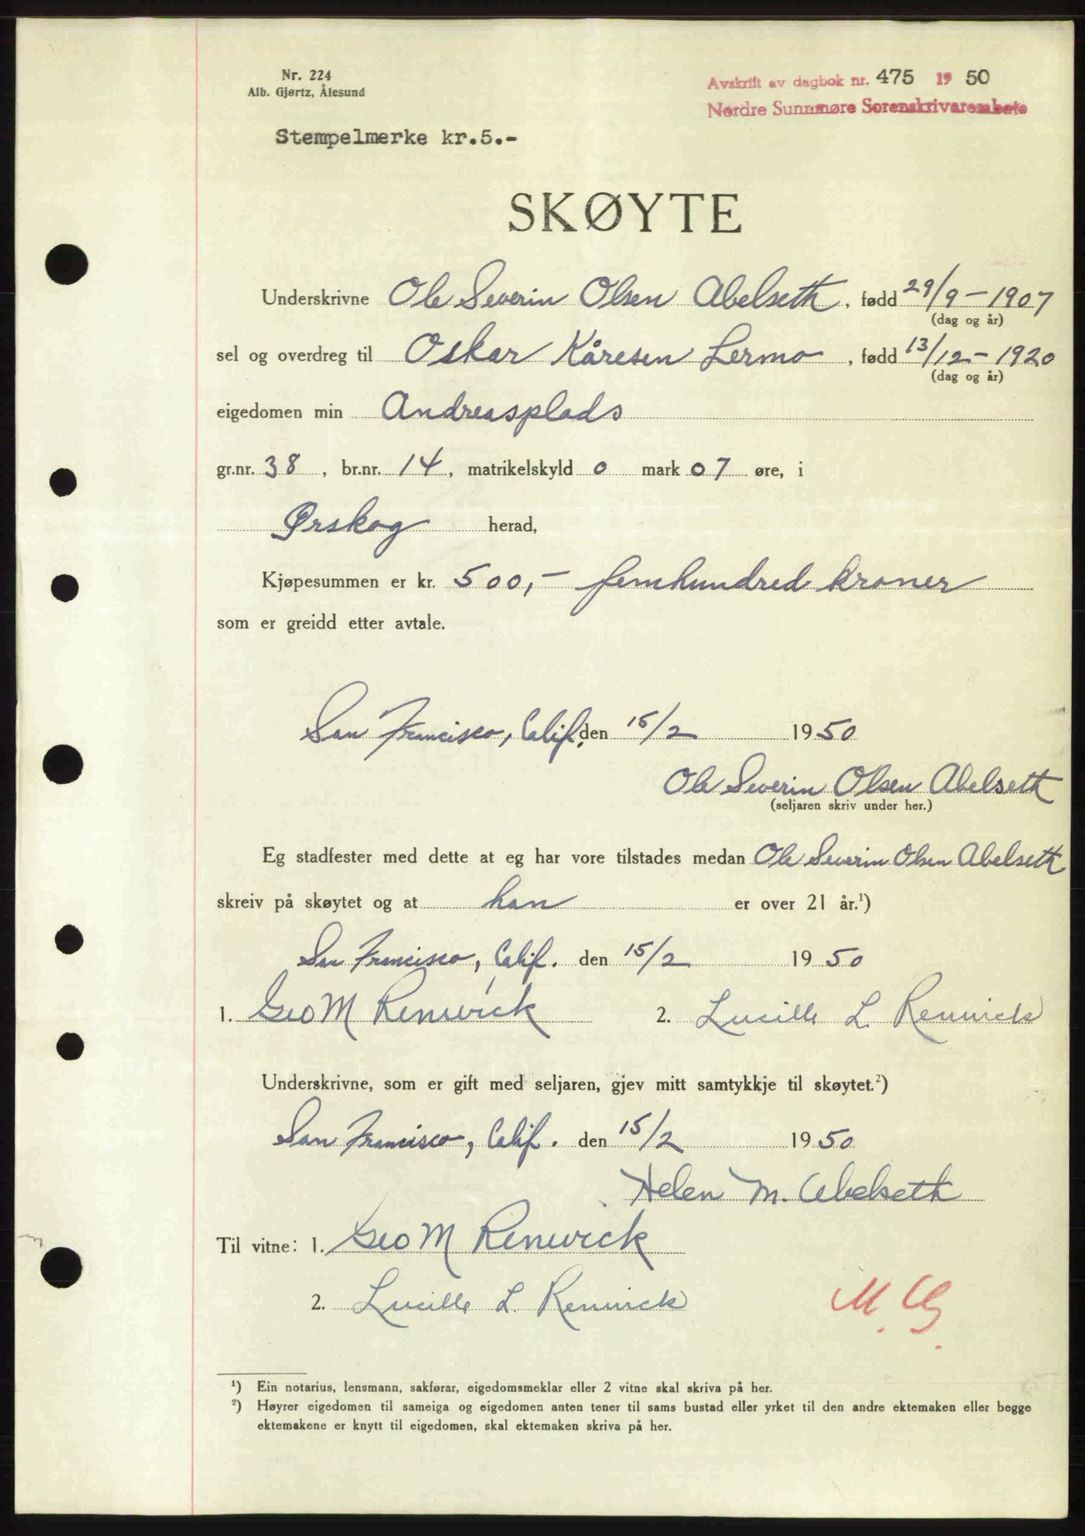 Nr. 224
Alb. Gjørtz, Ålesund
Avskrift av dagbok nr. 475 19 50
Nordre Sunnmøre Sorenskrivarembete
Stempelmerke kr.5.-
SKØYTE
Underskrivne Ole Severin Olsen Abelseth, fødd 29/9 - 1907
(dag og år)
sel og overdreg til Oskar Kåresen Lermo, fødd 13/12 - 1920
(dag og år)
eigedomen min Andreasplads
gr.nr. 38, br.nr. 14, matrikelskyld 0 mark 07 øre, i
Ørskog herad,
Kjøpesummen er kr. 500,- femhundred kroner
som er greidd etter avtale.
San Francisco, Calif. den 15/2 1950
Ole Severin Olsen Abelseth
(seljaren skriv under her.)
Eg stadfester med dette at eg har vore tilstades medan Ole Severin Olsen Abelseth
skreiv på skøytet og at han er over 21 år.¹)
San Francisco, Calif. den 15/2 1950
1. Geo M Renwick 2. Lucille L. Renwick
Underskrivne, som er gift med seljaren, gjev mitt samtykkje til skøytet.²)
San Francisco, Calif. den 15/2 1950
Helen M. Abelseth
Til vitne: 1. Geo M Renwick
2. Lucille L. Renwick
M. G.
¹) Ein notarius, lensmann, sakførar, eigedomsmeklar eller 2 vitne skal skriva på her.
²) Høyrer eigedomen til sameiga og eigedomen anten tener til sams bustad eller yrket til den andre ektemaken eller begge
ektemakene er knytt til eigedomen, skal ektemaken skriva på her.